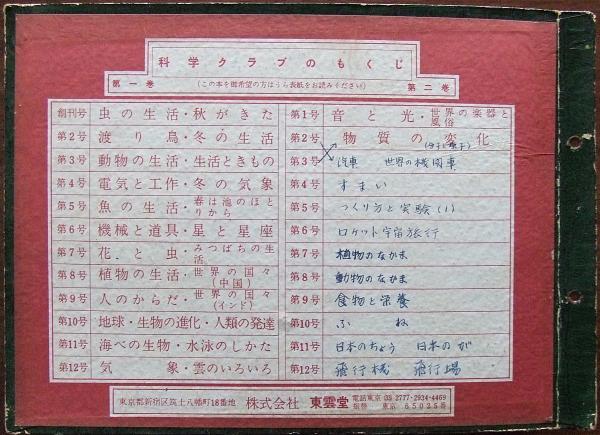 科学クラブのもくじ
第一巻 (この本を御希望の方はうら表紙をお読みください) 第二巻
創刊号 虫の生活・秋がきた
第2号 渡り鳥・冬の生活
第3号 動物の生活・生活ときもの
第4号 電気と工作・冬の気象
第5号 魚の生活・春は池のほとりから
第6号 機械と道具・星と星座
第7号 花と虫・みつばちの生活
第8号 植物の生活・世界の国々(中国)
第9号 人のからだ・世界の国々(インド)
第10号 地球・生物の進化・人類の発達
第11号 海べの生物・水泳のしかた
第12号 気象・雲のいろいろ
第1号 音と光・世界の楽器と風俗
第2号 物質の変化
(分子と原子)
第3号 汽車 世界の機関車
第4号 すまい
第5号 つくり方と実験(1)
第6号 ロケット宇宙旅行
第7号 植物のなかま
第8号 動物のなかま
第9号 食物と栄養
第10号 ふね
第11号 日本のちょう 日本のが
第12号 飛行機 飛行場
東京都新宿区筑土八幡町18番地 株式会社 東雲堂 電話東京 03 2777-2934-4469
振替 東京 65025番